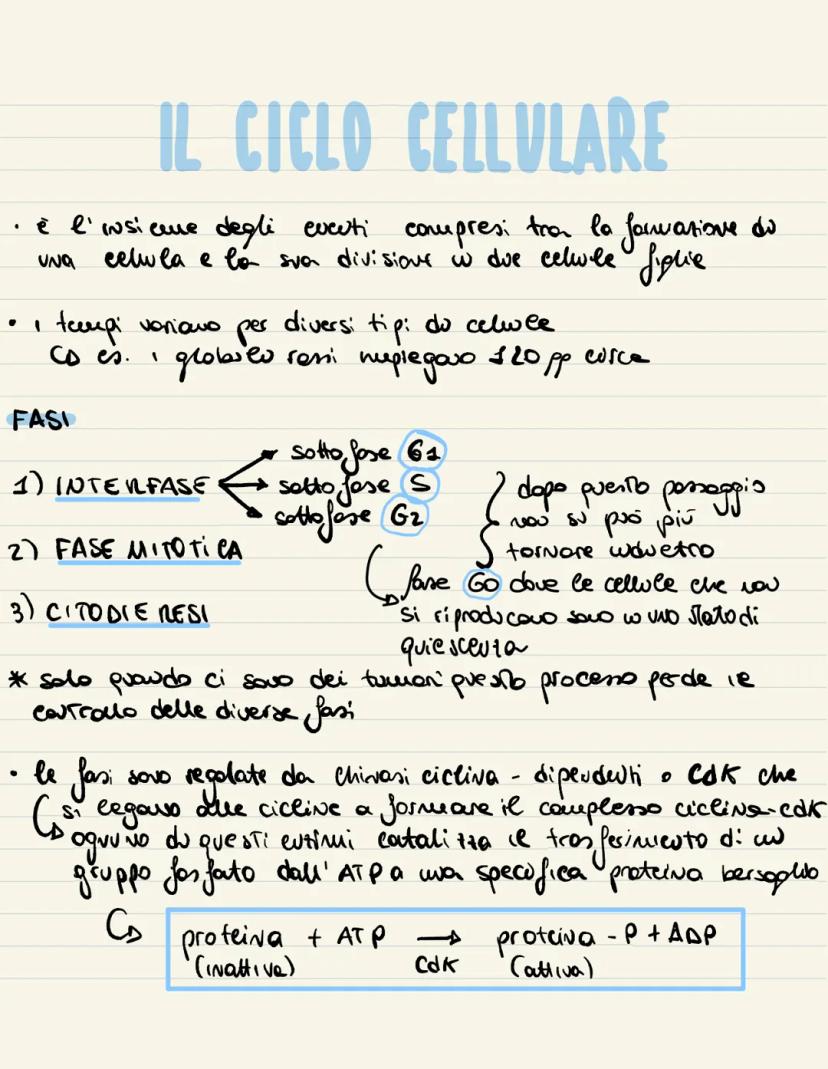 IL CICLO CELLULARE
• è l'insieme degli eventi compresi tra la formazione di
una cellula e la sua divisione in due cellule figlie
• i tempi variano per diversi tipi di cellule
↳ es. i globuli rossi impiegano 120 gg circa
FASI
1) INTERFASE
sottofase G1
sottofase S
sottofase G2
dopo questo passaggio
non si può più
tornare indietro
2) FASE MITOTICA
↳ fase G0 dove le cellule che non
si riproducono sono in uno stato di
quiescenza
3) CITODIERESI
* solo quando ci sono dei tumori questo processo perde il
controllo delle diverse fasi
• le fasi sono regolate da chinasi ciclina-dipendenti o Cdk che
si legano alle cicline a formare il complesso ciclina-cdk
↳ ognuno di questi enzimi catalizza il trasferimento di un
gruppo fosfato dall'ATP a una specifica proteina bersaglio
↳ proteina + ATP → proteina - P + ADP
(inattiva) Cdk (attiva)